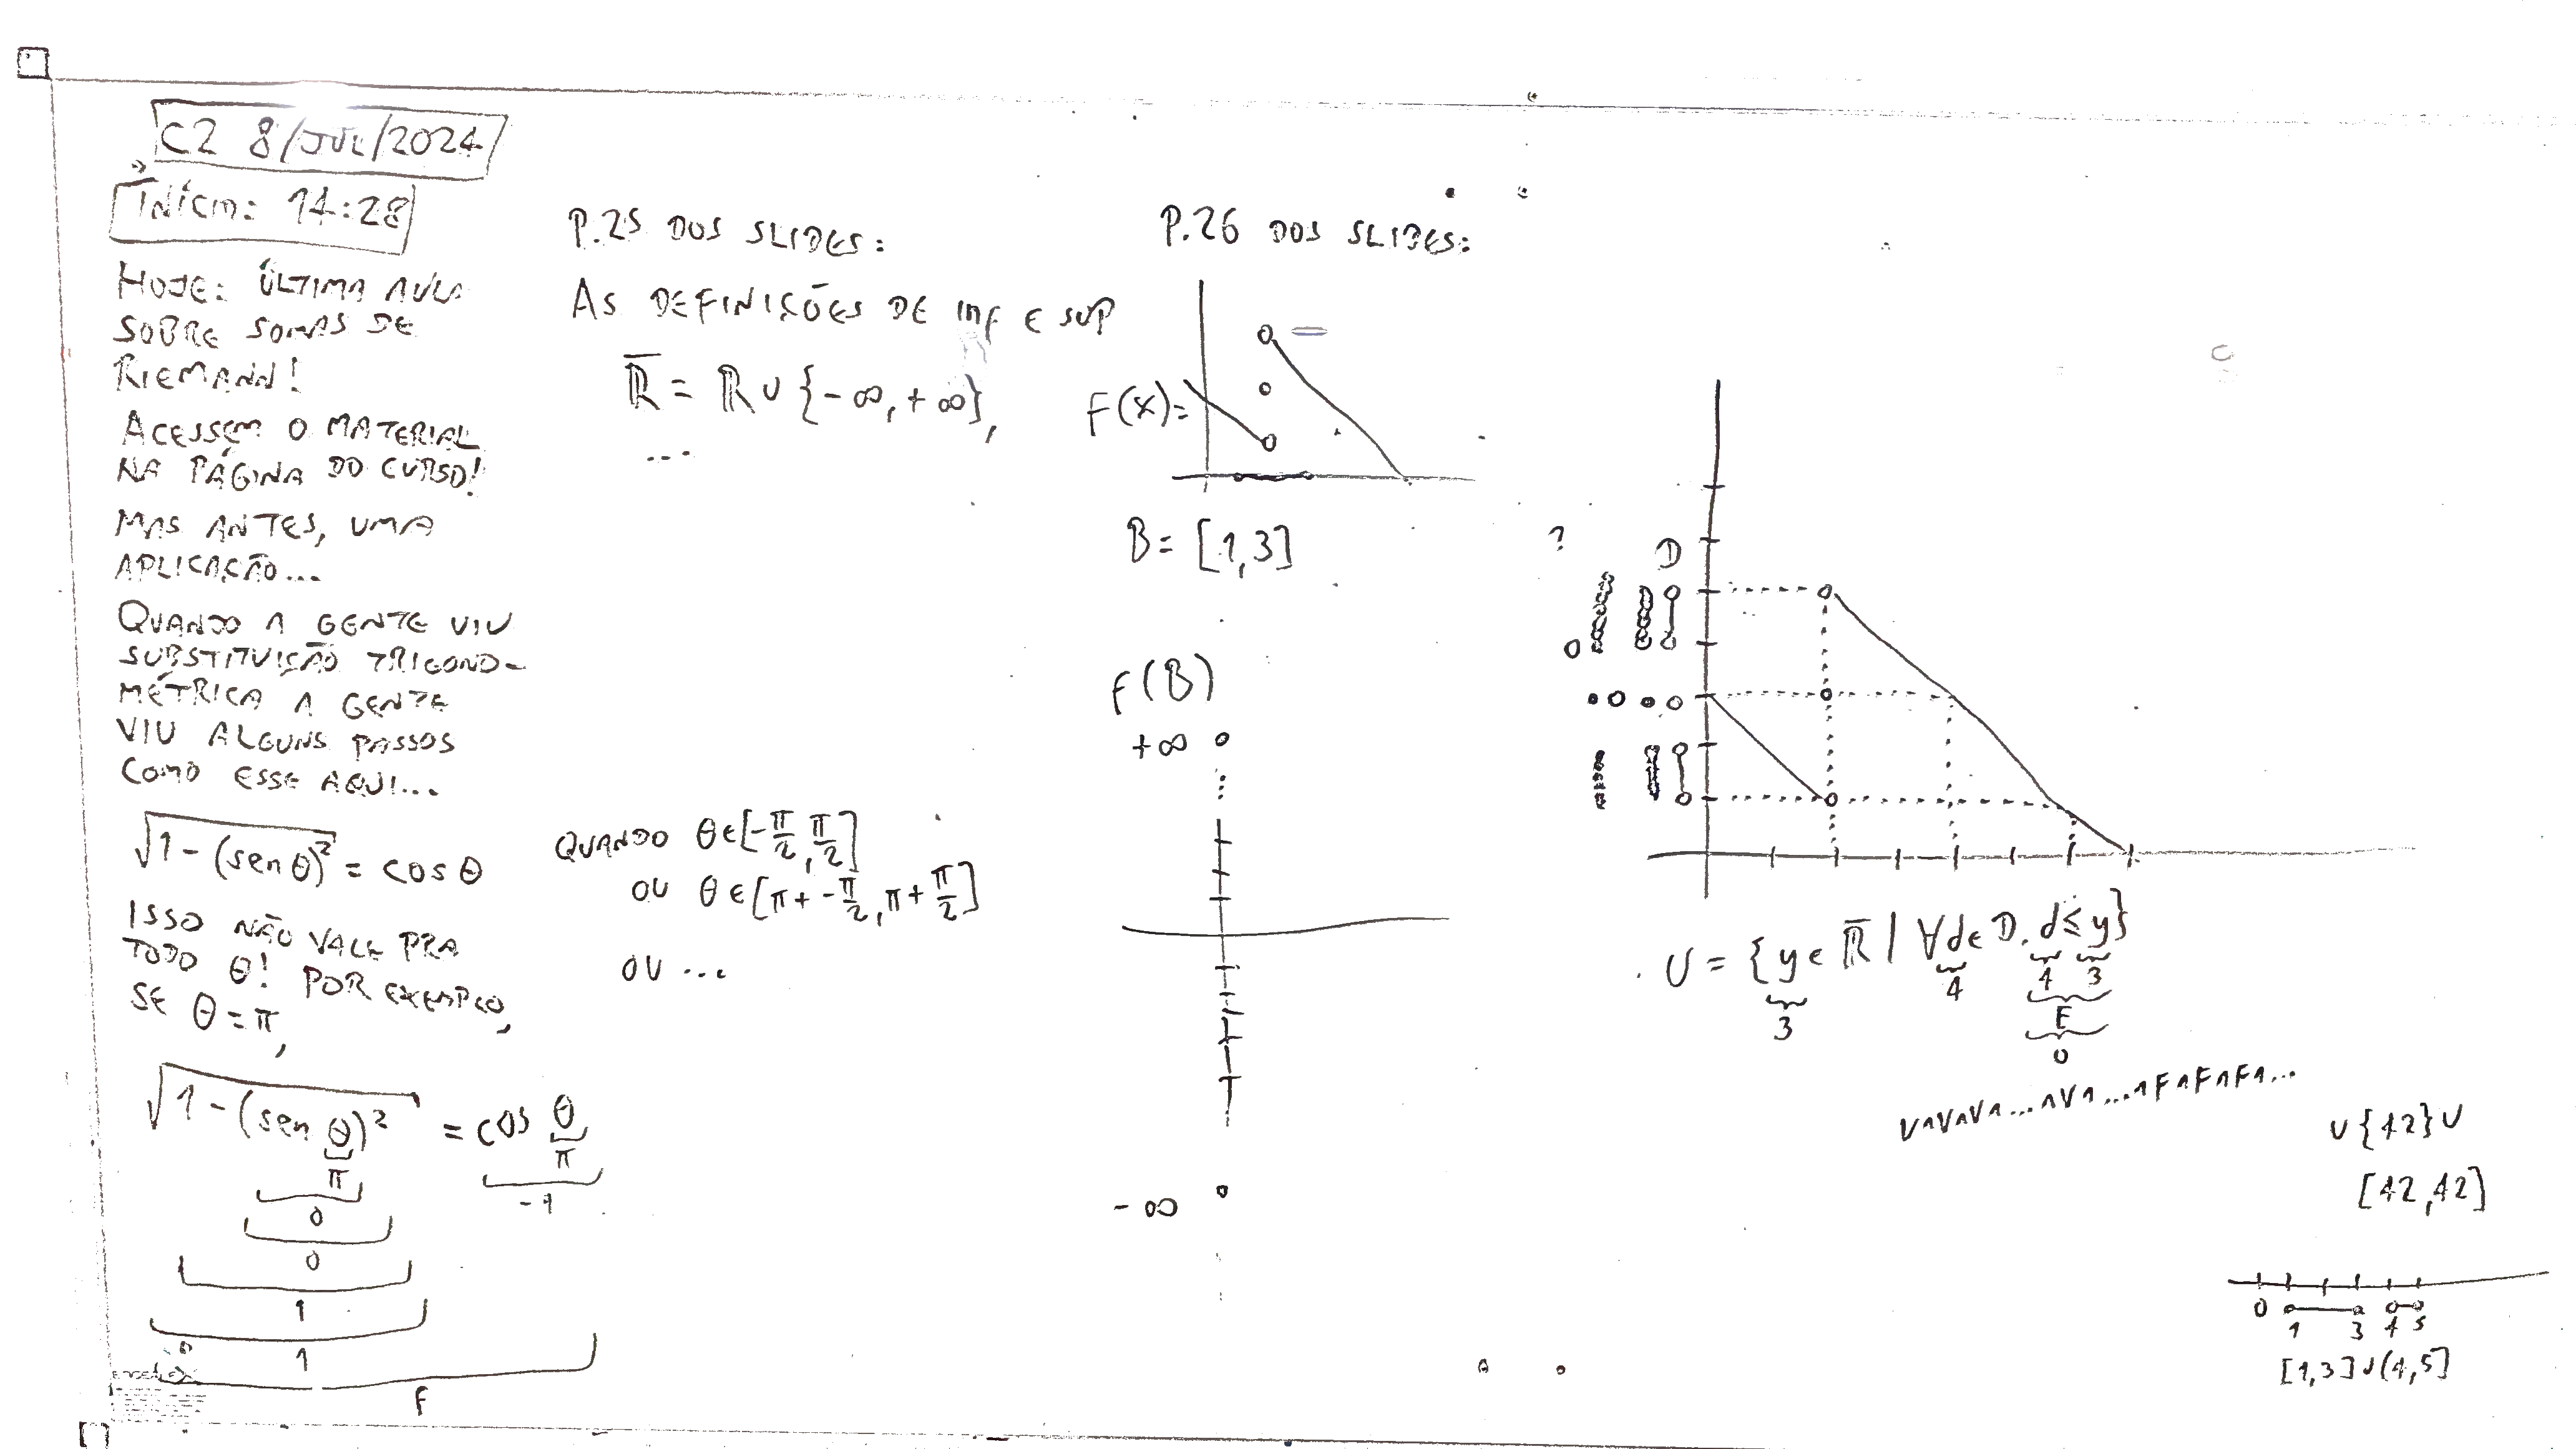 C2 8/JUL/2024
INÍCIO: 14:28
HOJE: ÚLTIMA AULA
SOBRE SOMAS DE
RIEMANN!
ACESSEM O MATERIAL
NA PÁGINA DO CURSO!
MAS ANTES, UMA
APLICAÇÃO...
QUANDO A GENTE VIU
SUBSTITUIÇÃO TRIGONO-
MÉTRICA A GENTE
VIU ALGUNS PASSOS
COMO ESSE AQUI...
√1-(sen θ)² = cos θ
ISSO NÃO VALE PRA
TODO θ! POR EXEMPLO,
SE θ=π,
√1-(sen θ)² = cos θ
π π
0 -1
0
1
1
F
P.25 DOS SLIDES:
AS DEFINIÇÕES DE inf E SUP
R̅ = R∪{-∞,+∞},
...
QUANDO θ∈[-π/2,π/2]
OU θ∈[π+-π/2,π+π/2]
OU ...
P.26 DOS SLIDES:
F(x)=
B=[1,3]
F(B)
+∞
-∞
? D
U={y∈R̅ | ∀d∈D. d≤y}
3 4 4 3
F
V∧V∧V∧...∧V∧...∧F∧F∧F∧...
∪{42}∪
[42,42]
0 1 3 4 5
[1,3]∪(4,5]